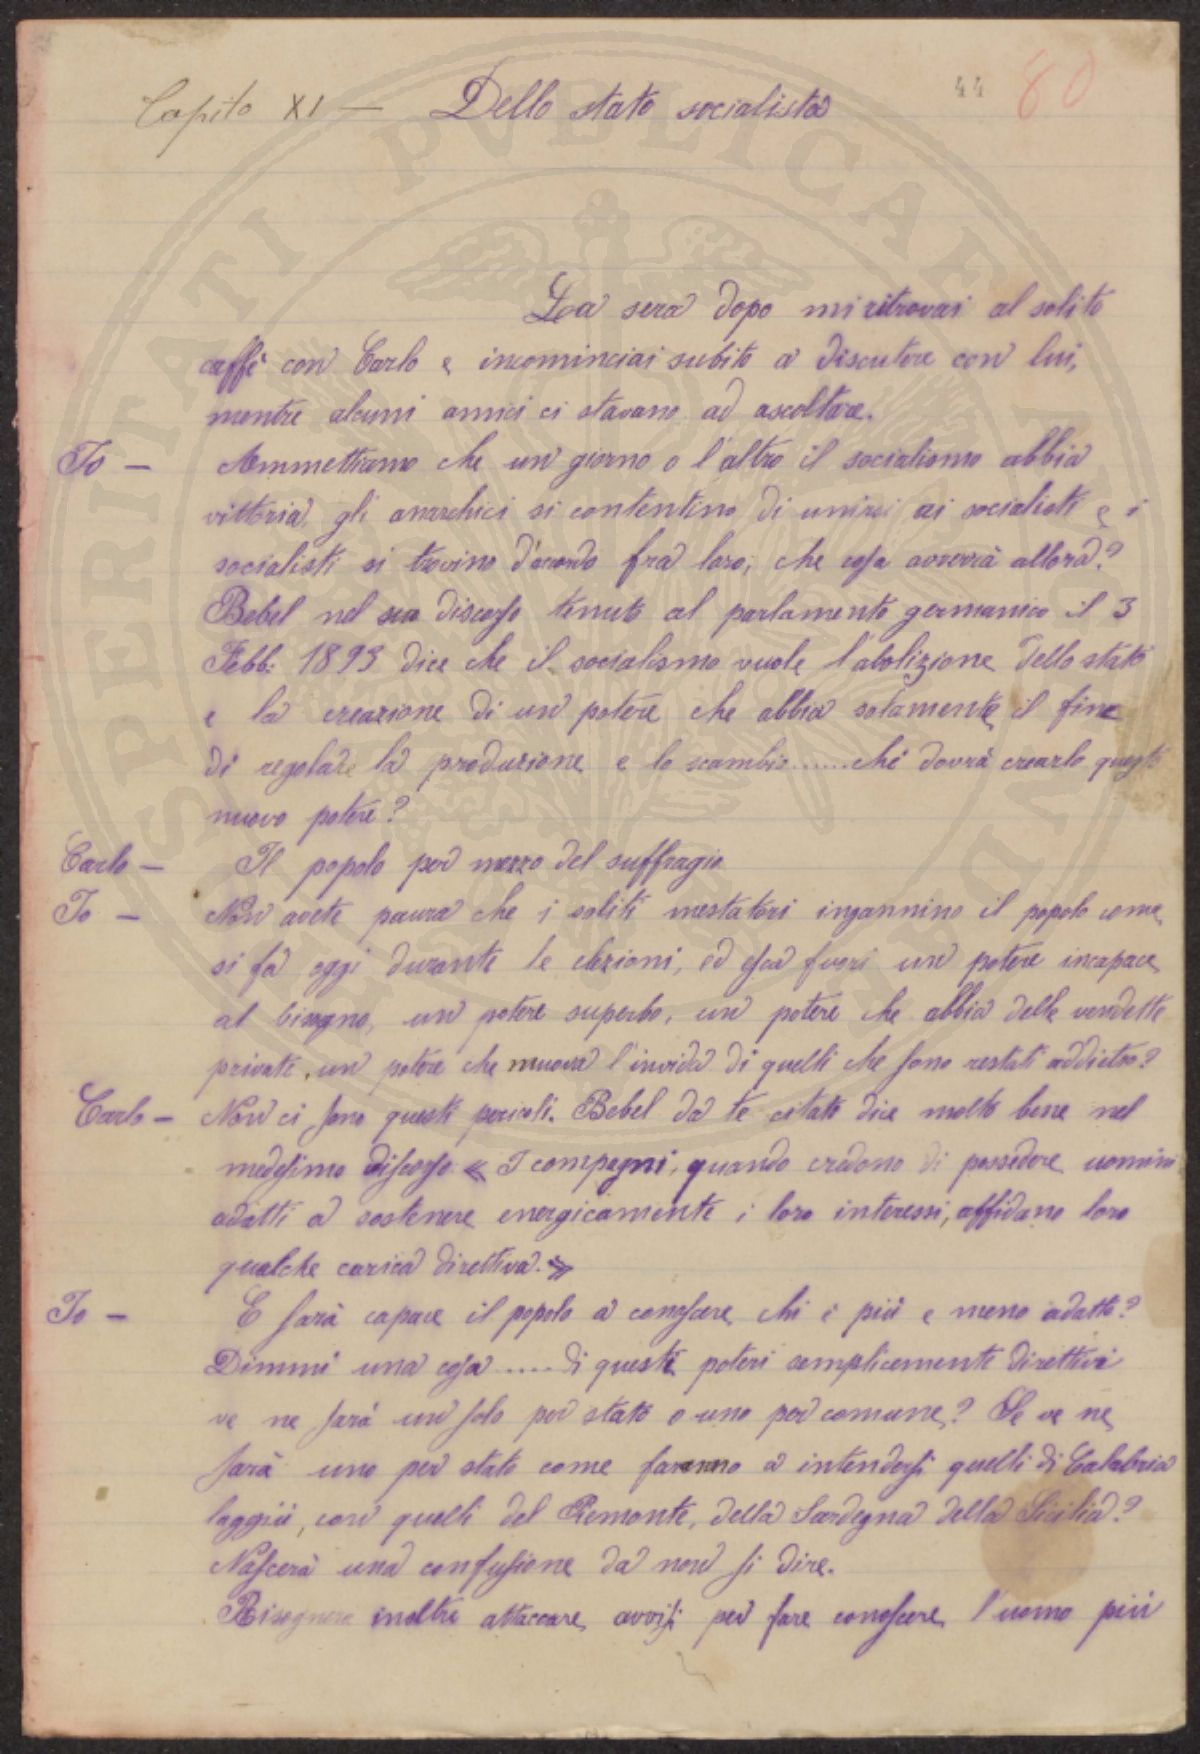 44 80
Capito XI — Dello stato socialista
La sera dopo mi ritrovai al solito
caffè con Carlo e incominciai subito a discutere con lui,
mentre alcuni amici ci stavano ad ascoltare.
Io — Ammettiamo che un giorno o l'altro il socialismo abbia
vittoria, gli anarchici si contentino di unirsi ai socialisti e i
socialisti si trovino d'accordo fra loro; che cosa avverrà allora?
Bebel nel suo discorso tenuto al parlamento germanico il 3
Febb: 1893 dice che il socialismo vuole l'abolizione dello stato
e la creazione di un potere che abbia solamente il fine
di regolare la produzione e lo scambio......chi dovrà crearlo questo
nuovo potere?
Carlo — Il popolo per mezzo del suffragio
Io — Non avete paura che i soliti mestatori ingannino il popolo come
si fa oggi durante le elezioni, ed esca fuori un potere incapace
al bisogno, un potere superbo, un potere che abbia delle vendette
private, un potere che muova l'invidia di quelli che sono restati addietro?
Carlo — Non ci sono questi pericoli. Bebel da te citato dice molto bene nel
medesimo discorso « I compagni, quando credono di possedere uomini
adatti a sostenere energicamente i loro interessi, affidano loro
qualche carica direttiva.»
Io — E sarà capace il popolo a conoscere chi è più e meno adatto?
Dimmi una cosa.....di questi poteri semplicemente direttivi
ve ne sarà un solo per stato o uno per comune? Se ve ne
sarà uno per stato come faranno a intendersi quelli di Calabria
laggiù, con quelli del Piemonte, della Sardegna della Sicilia?
Nascerà una confusione da non si dire.
Bisognerà inoltre attaccare avvisi per fare conoscere l'uomo più
PROSPERITATI PVBLICAE